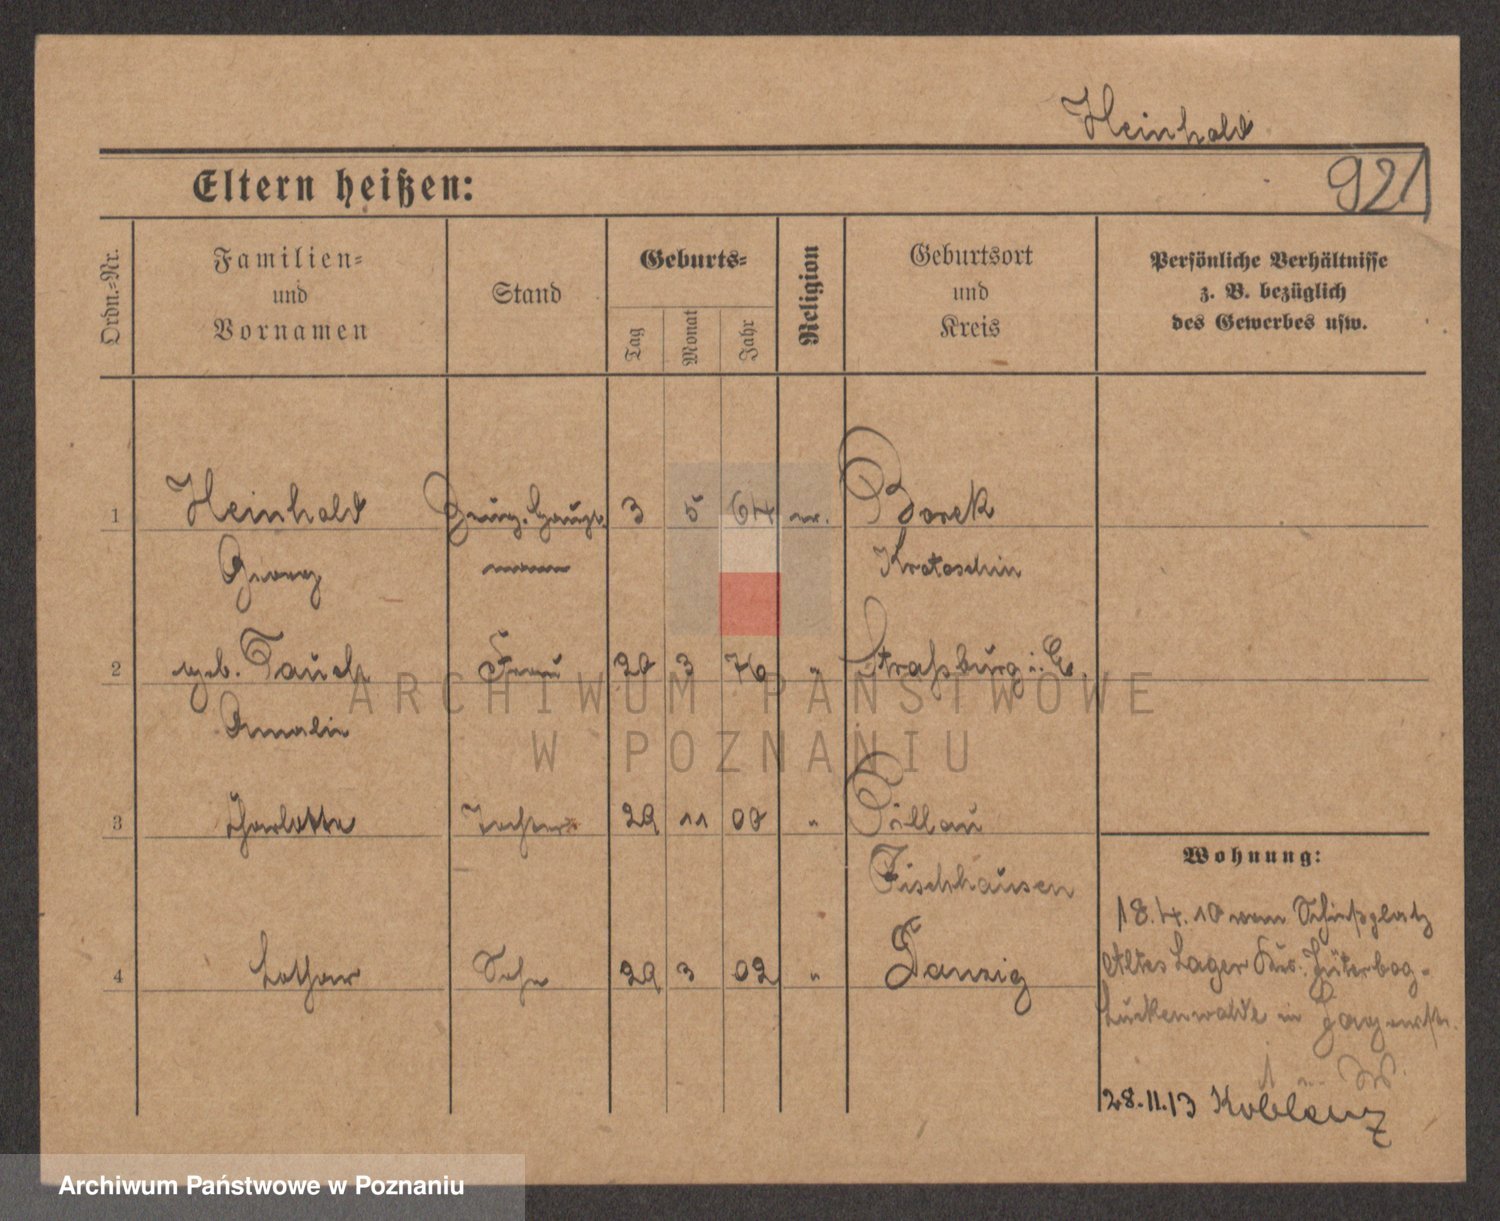 Heinhold
Eltern heißen:
921
Ordn.-Nr.
Familien-
und
Vornamen
Stand
Geburts-
Tag
Monat
Jahr
Religion
Geburtsort
und
Kreis
Persönliche Verhältnisse
z. B. bezüglich
des Gewerbes usw.
1 Heinhold Zeug. Haupt- 3 5 64 ev. Borek
Georg mann Krotoschin
2 geb. Tauch Frau 20 3 76 " Straßburg i. E.
Amalie
3 Charlotte Tochter 29 11 00 " Pillau
Fischhausen
4 Lothar Sohn 29 3 02 " Danzig
Wohnung:
18.4.10 vom Schießplatz
Altes Lager Krs. Jüterbog-
Luckenwalde in
28.11.13 Koblenz
ARCHIWUM PAŃSTWOWE
W POZNANIU
Archiwum Państwowe w Poznaniu